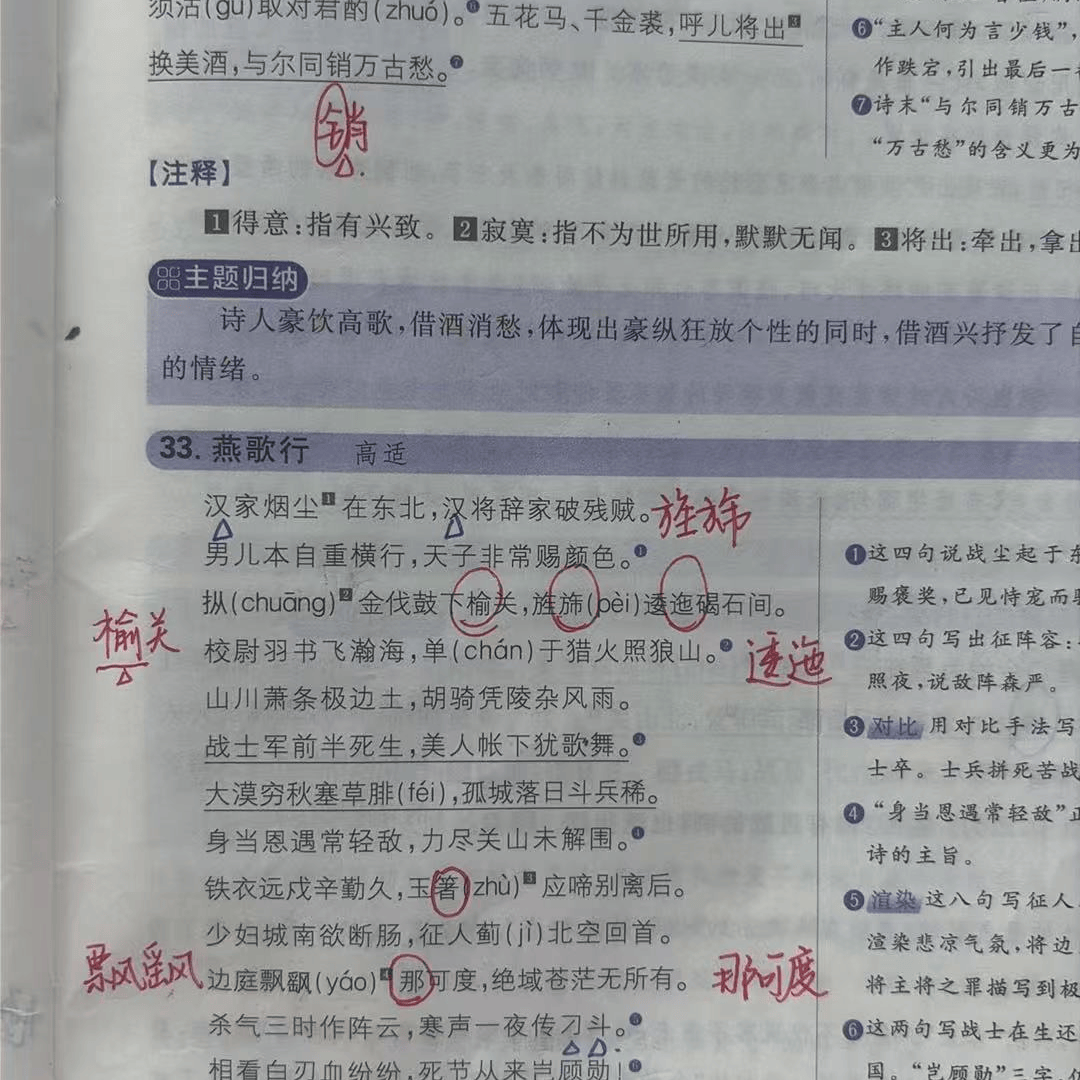 须沽(gū)取对君酌(zhuó)。❻五花马、千金裘,呼儿将出3
换美酒,与尔同销万古愁。❼
销
【注释】
1得意:指有兴致。 2寂寞:指不为世所用,默默无闻。 3将出:牵出,拿出
主题归纳
诗人豪饮高歌,借酒消愁,体现出豪纵狂放个性的同时,借酒兴抒发了自
的情绪。
33. 燕歌行 高适
汉家烟尘1在东北,汉将辞家破残贼。
旌旆
男儿本自重横行,天子非常赐颜色。❶
摐(chuāng)2金伐鼓下榆关,旌旆(pèi)逶迤碣石间。
榆关
校尉羽书飞瀚海,单(chán)于猎火照狼山。❷
逶迤
山川萧条极边土,胡骑凭陵杂风雨。
战士军前半死生,美人帐下犹歌舞。❸
大漠穷秋塞草腓(féi),孤城落日斗兵稀。
身当恩遇常轻敌,力尽关山未解围。❹
铁衣远戍辛勤久,玉箸(zhù)3应啼别离后。
少妇城南欲断肠,征人蓟(jì)北空回首。
飘飖
边庭飘飖(yáo)4那可度,绝域苍茫无所有。
那可度
杀气三时作阵云,寒声一夜传刁斗。❺
相看白刃血纷纷,死节从来岂顾勋!❻
❻“主人何为言少钱”,
作跌宕,引出最后一
❼诗末“与尔同销万古
“万古愁”的含义更为
❶这四句说战尘起于东
赐褒奖,已见恃宠而
❷这四句写出征阵容:
照夜,说敌阵森严。
❸对比 用对比手法写
士卒。士兵拼死苦战
❹“身当恩遇常轻敌”正
诗的主旨。
❺渲染 这八句写征人
渲染悲凉气氛,将边
将主将之罪描写到极
❻这两句写战士在生还
国。“岂顾勋”三字,